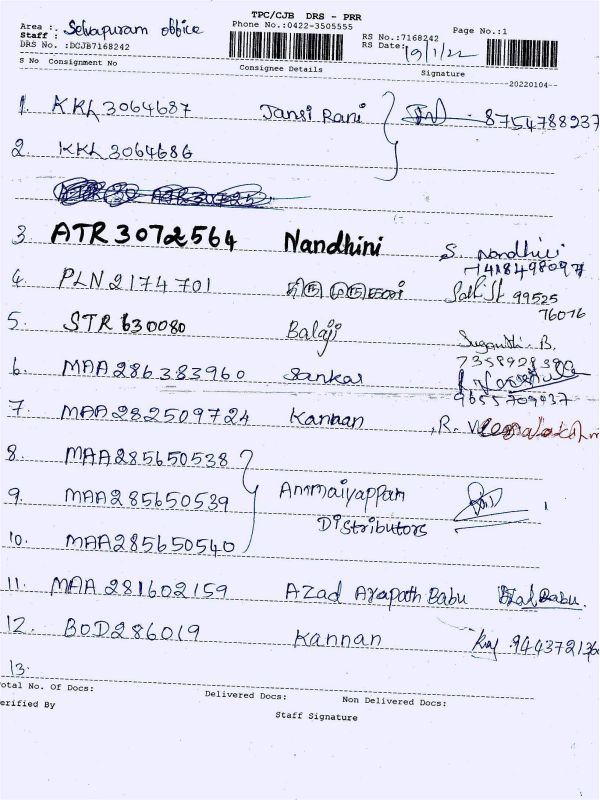 TPC/CJB DRS - PRR
Area : Selvapuram office
Phone No.:0422-3505555
Page No.:1
Staff :
RS No.:7168242
DRS No. :DCJB7168242
RS Date: 19/1/22
S No Consignment No Consignee Details Signature
20220104
1. KKL3064687 Jansi Rani 8754788937
2. KKL3064686
3 ATR3072564 Nandhini S. Nandhini
7418498097
4 PLN2174701 Sathish 99525
76076
5 STR630080 Balaji Suganthi. B.
6. MAA286383960 Sankar
9655709937
7. MAA282509724 Kannan R.
8. MAA285650538
9. MAA285650539 Ammaiyappan
Distributors
10. MAA285650540
11. MAA281602159 Azad Arapath Babu Babu.
12. BOD286019 Kannan Raj 944372136
13.
otal No. Of Docs: Delivered Docs: Non Delivered Docs:
erified By Staff Signature